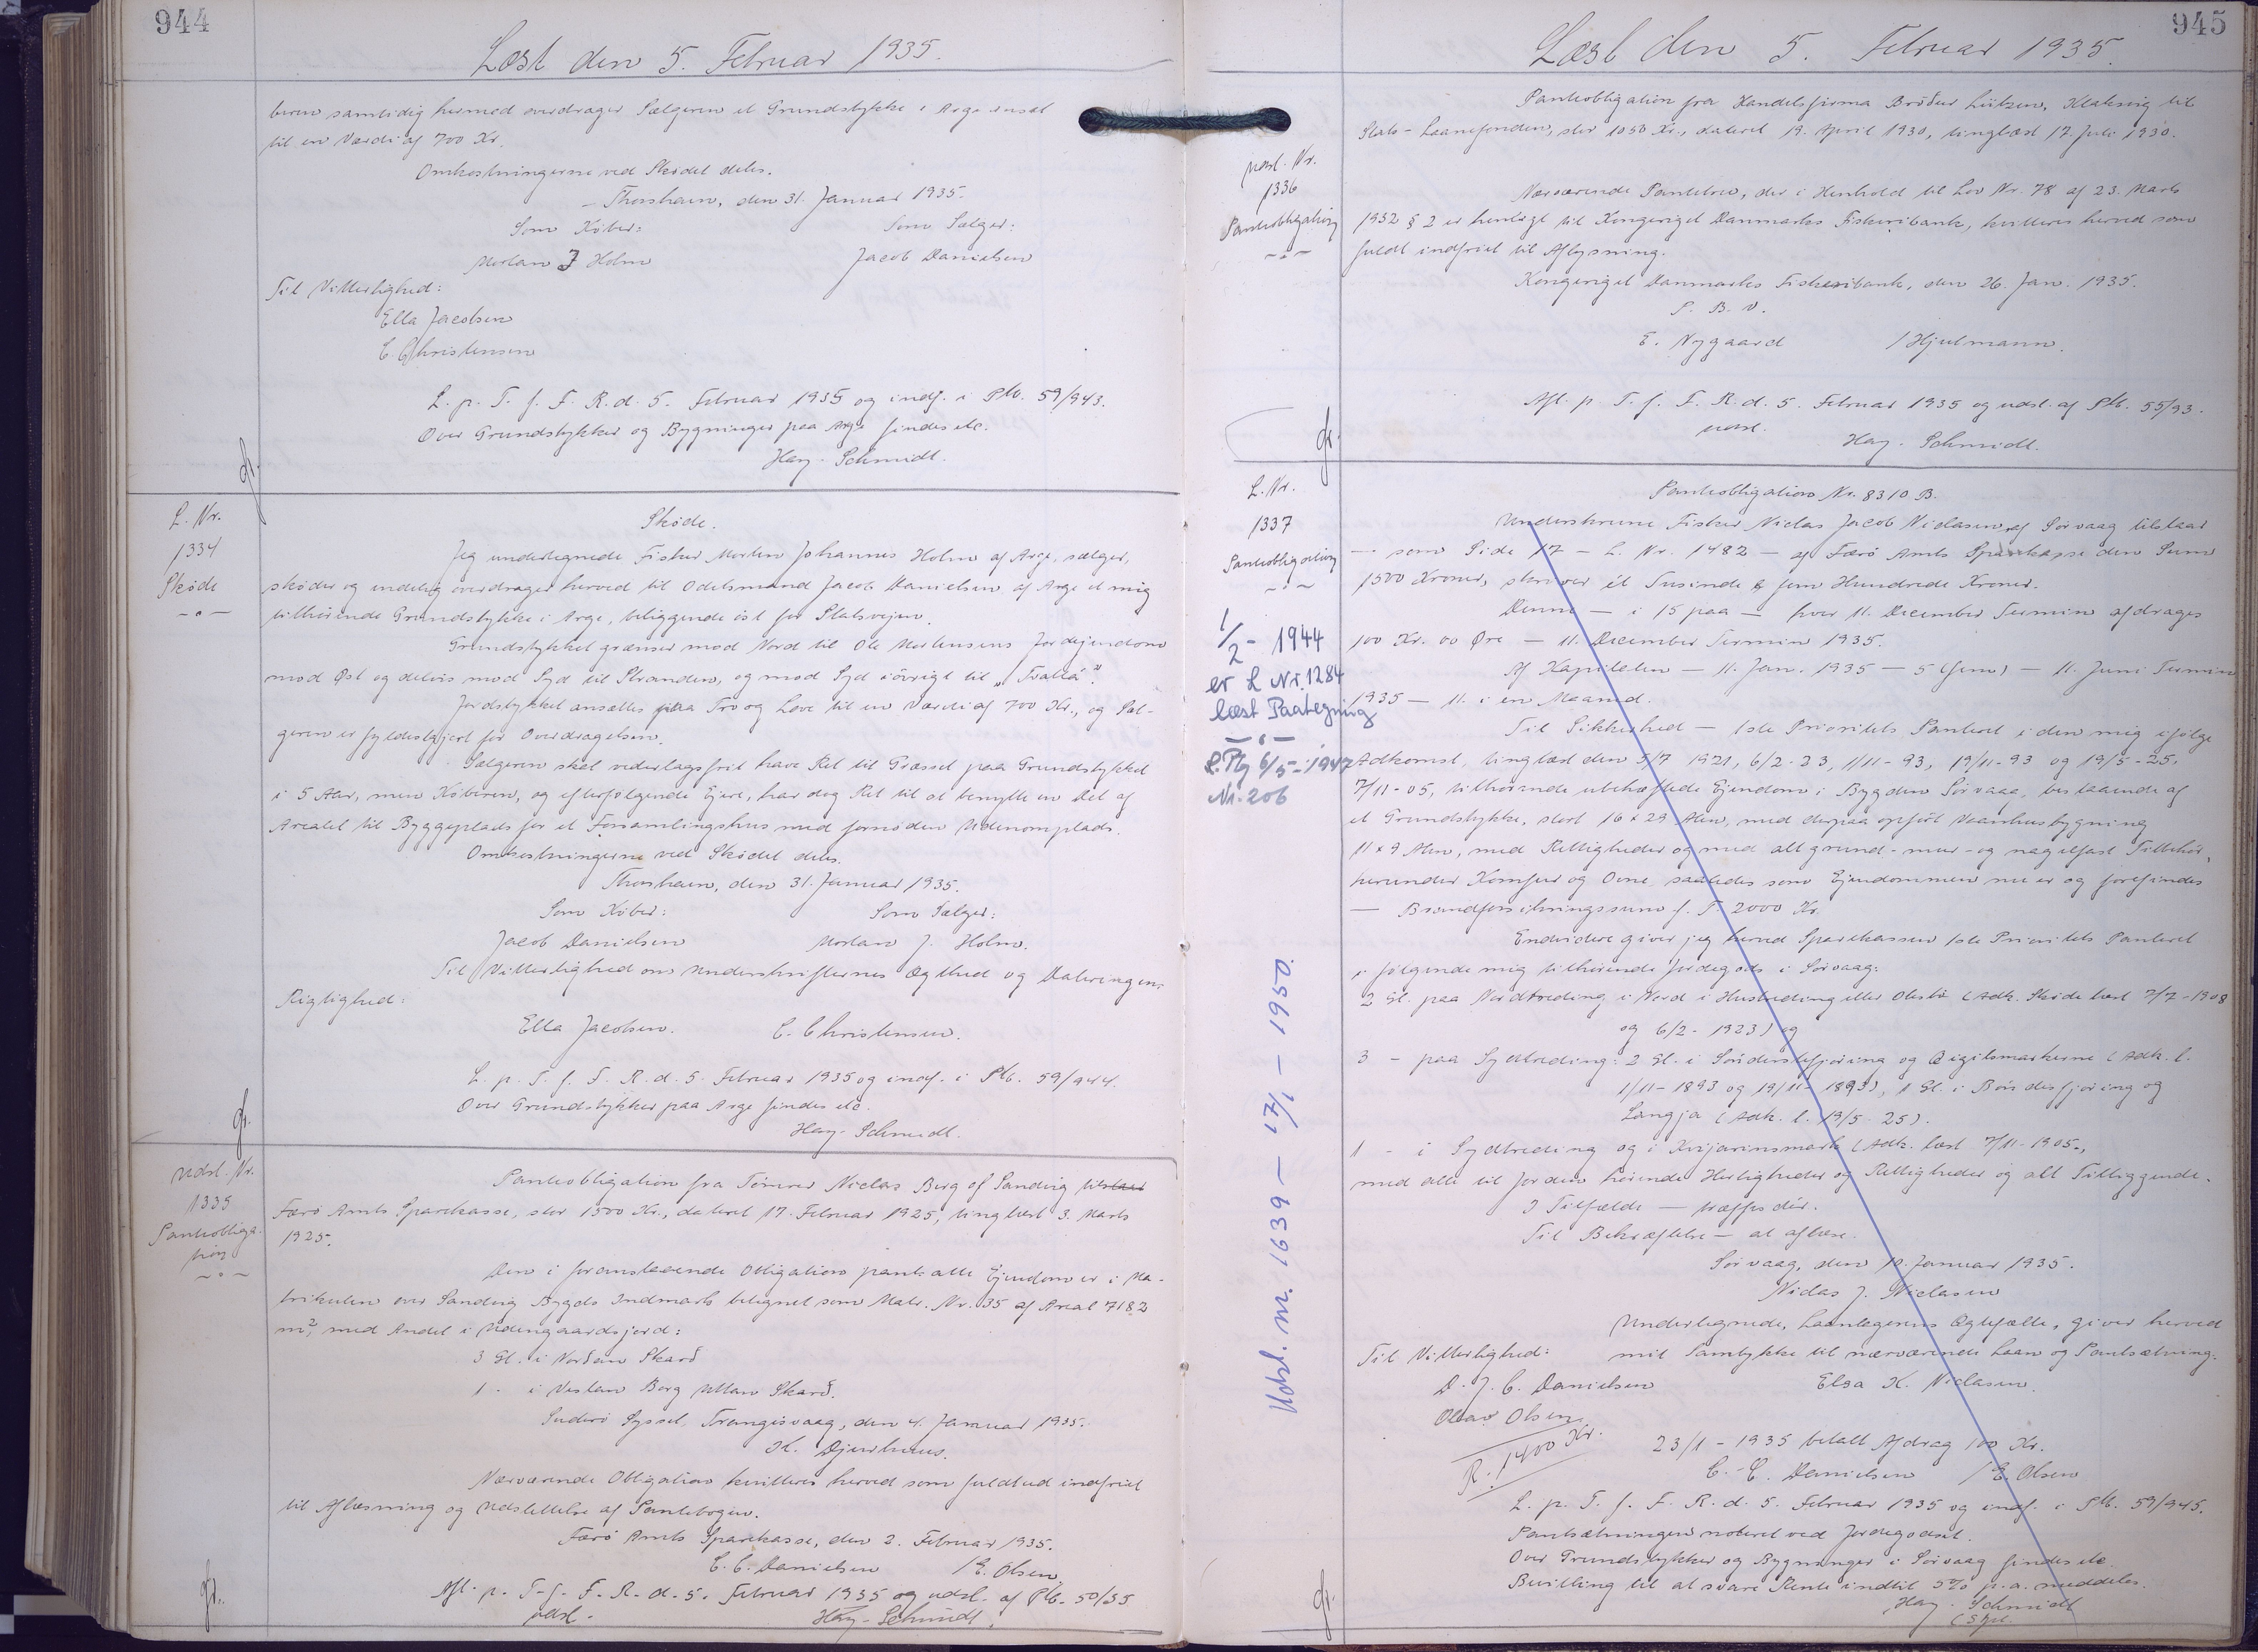 944
Læst den 5. Februar 1935.
beren samtidig hermed overdrager Sælgeren et Grundstykke i Arge ansat
til en Værdi af 700 Kr.
Omkostningerne ved Skødet deles.
Thorshavn, den 31. Januar 1935.
Som Køber: Som Sælger:
Mortan J Holm Jacob Danielsen
Til Vitterlighed:
Ella Jacobsen
C. Christensen
L. p. T. f. F. R. d. 5. Februar 1935 og indf. i Ptb. 59/943.
Over Grundstykker og Bygninger paa Arge findes etc.
Hay-Schmidt.
L. Nr.
1334
Skøde
Skøde.
Jeg undertegnede Fisker Morten Johannes Holm af Arge, sælger,
skøder og endelig overdrager herved til Odelsmand Jacob Danielsen af Arge et mig
tilhørende Grundstykke i Arge, beliggende øst for Statsvejen.
Grundstykket grænser mod Nord til Ole Mortensens Jordejendom
mod Øst og delvis mod Syd til Stranden, og mod Syd iøvrigt til "Trallá".
Jordstykket ansættes paa Tro og Love til en Værdi af 700 Kr., og Sæl-
geren er fyldestgjort for Overdragelsen.
Sælgeren skal vederlagsfrit have Ret til Græsset paa Grundstykket
i 5 Aar, men Køberen, og efterfølgende Ejere, har dog Ret til at benytte en Del af
Arealet til Byggeplads for et Forsamlingshus med fornøden Udenomsplads.
Omkostningerne ved Skødet deles.
Thorshavn, den 31. Januar 1935.
Som Køber: Som Sælger:
Jacob Danielsen Mortan J. Holm.
Til Vitterlighed om Underskrifternes Ægthed og Dateringens
Rigtighed:
Ella Jacobsen. C. Christensen.
L. p. T. f. F. R. d. 5. Februar 1935 og indf. i Ptb. 59/944.
Over Grundstykker paa Arge findes etc.
Hay-Schmidt.
Udsl. Nr.
1335
Pantobliga-
tion
Pantobligation fra Tømrer Niclas Berg af Sandvig tilstaar
Færø Amts Sparekasse, stor 1500 Kr., dateret 17. Februar 1925, tinglæst 3. Marts
1925.
Den i foranstaaende Obligation pantsatte Ejendom er i Ma-
trikulen over Sandvig Bygds Indmark betegnet som Matr. Nr. 35 af Areal 7182
m², med Andel i Udengaardsjord:
3 Gl. i Norðan Skarð
1 - i Vestan Berg uttan Skarð.
Suderø Syssel, Trangisvaag, den 4. Januar 1935.
H. Djurhuus.
Nærværende Obligation kvitteres herved som fuldtud indfriet
til Aflæsning og Udslettelse af Pantebogen.
Færø Amts Sparekasse, den 2. Februar 1935.
C. C. Danielsen /E. Olsen.
Afl. p. T. f. F. R. d. 5. Februar 1935 og udsl. af Ptb. 50/35
udsl.
Hay-Schmidt.
945
Læst den 5. Februar 1935.
Pantobligation fra Handelsfirma Brøður Lützen, Klaksvig til
Stats-Laanefonden, stor 1050 Kr., dateret 19. April 1930, tinglæst 17. Juli 1930.
Udsl. Nr.
1336
Pantobligation
Nærværende Pantebrev, der i Henhold til Lov Nr. 78 af 23. Marts
1932 § 2 er henlagt til Kongeriget Danmarks Fiskeribank, kvitteres herved som
fuldt indfriet til Aflysning.
Kongeriget Danmarks Fiskeribank, den 26. Jan. 1935.
P. B. V.
E. Nygaard /Hjulmann.
Afl. p T. f. F. R. d. 5. Februar 1935 og udsl. af Ptb. 55/93.
udsl.
Hay-Schmidt.
L. Nr.
1337
Pantobligation
1/2 - 1944
er L Nr. 1284
læst Paategning
L. Nr 6/5-1947
Nr. 206
Udsl. nr. 1639 - 17/1 - 1950.
Pantobligation Nr. 8310 B.
Underskrevne Fisker Niclas Jacob Niclasen, af Sørvaag tilstaar
— som Side 17 — L. Nr. 1482 — af Færø Amts Sparekasse den Sum
1500 Kroner, skriver ét Tusinde & fem Hundrede Kroner.
Denne — i 15 paa — hver 11. December Termin afdrages
100 Kr. 00 Øre — 11. December Termin 1935.
Af Kapitalen — 11. Jan. 1935 — 5 (fem) — 11. Juni Termin
1935 — 11. i en Maaned.
Til Sikkerhed — 1ste Prioritets Panteret i den mig ifølge
Adkomst, tinglæst den 5/7 1921, 6/2-23, 1/11-93, 19/11-93 og 19/5-25,
7/11-05, tilhørende ubehæftede Ejendom i Bygden Sørvaag, bestaaende af
et Grundstykke, stort 16 x 29 Alen, med derpaa opført Vaaningsbygning
11 x 9 Alen, med Rettigheder og med alt grund- mur- og nagelfast Tilbehør,
herunder Komfur og Ovne, saaledes som Ejendommen nu er og forefindes
— Brandforsikringssum f. T. 2000 Kr.
Endvidere giver jeg herved Sparekassen 1ste Prioritets Panteret
i følgende mig tilhørende Jordegods i Sørvaag:
2 Gl. paa Nordtreding i Nord i Hustreding eller Olastó (Adk. Skøde læst 7/7-1908
og 6/2-1923) og
3 - paa Sydtreding: 2 Gl. i og (Adk. l.
1/11-1893 og 19/11-1893), 1 Gl. i og
Langja (Adk. l. 19/5-25).
1 - i Sydtreding og i (Adk. læst 7/11-1905,
med alle til Jorden hørende Herligheder og Rettigheder og alt Tilliggende.
I Tilfælde — træffes dér.
Til Bekræftelse — at aflæse.
Sørvaag, den 10. Januar 1935.
Niclas J. Niclasen
Undertegnede, Laantagerens Ægtefælle, giver herved
Til Vitterlighed: mit Samtykke til nærværende Laan og Pantsætning.
D. J. C. Danielsen Elsa K. Niclasen.
Olsen.
R. 1400 Kr.
23/1 - 1935 betalt Afdrag 100 Kr.
C. C. Danielsen /E. Olsen
L. p. T. f. F. R. d. 5. Februar 1935 og indf. i Ptb. 59/945.
Pantsætningen noteret ved Jordegodset.
Over Grundstykker og Bygninger i Sørvaag findes etc.
Bevilling til at svare Rente indtil 5% p.a. meddeles.
Hay-Schmidt